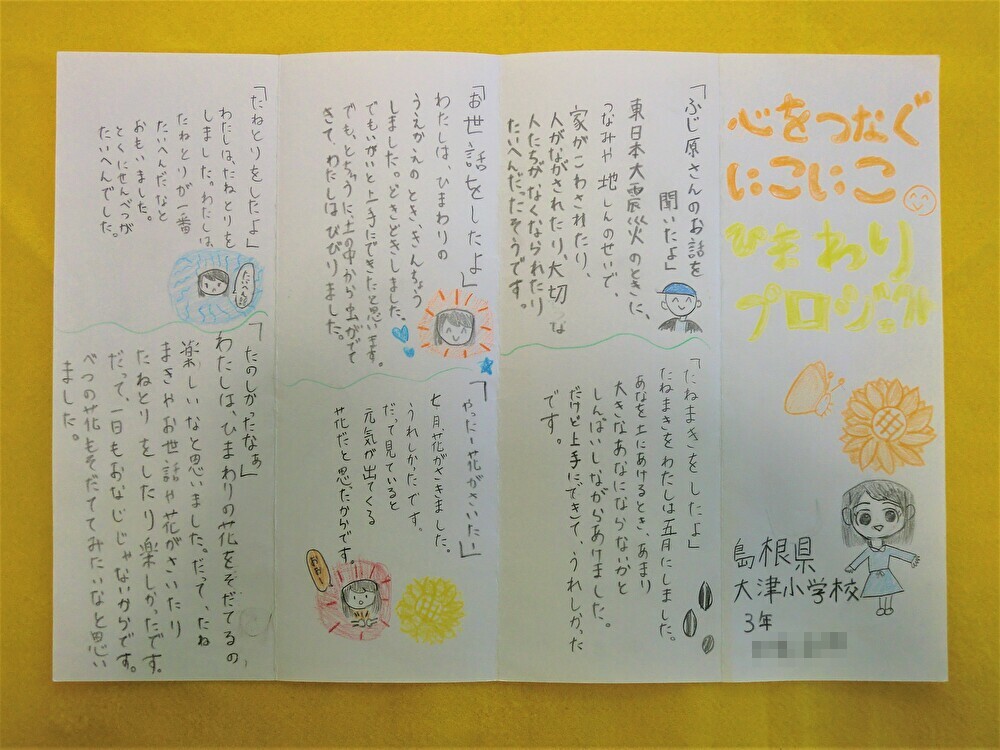 心をつなぐ
にこにこ
ひまわり
プロジェクト
島根県
大津小学校
3年
「ふじ原さんのお話を
聞いたよ」
東日本大震災のときに、
つなみや地しんのせいで、
家がこわされたり、
人がながされたり、大切な
人たちがなくなられたり
たいへんだったそうです。
「たねまきをしたよ」
たねまきをわたしは五月にしました。
あなを土にあけるとき、あまり
大きなあなにならないかと
しんぱいしながらあけました。
だけど上手にできて、うれしかった
です。
「お世話をしたよ」
わたしは、ひまわりの
うえかえのとき、きんちょう
しました。どきどきしました。
でもいがいと上手にできたと思います。
でも、とちゅうに、土の中から虫がでて
きて、わたしはびびりました。
「やったー花がさいたー」
七月、花がさきました。
うれしかたです。
だって見ていると
元気が出てくる
花だと思だからです。
おおー
「たねとりをしたよ」
わたしは、たねとりを
しました。わたしは、
たねとりが一番
たいへんだなと
おもいました。
とくにせんべつが
たいへんでした。
たいへん
「たのしかったなぁ」
わたしは、ひまわりの花をそだてるの、
楽しいなと思いました。だって、たね
まきやお世話や花がさいたり
たねとりをしたり楽しかったです。
だって、一日もおなじじゃないからです。
べつの花もそだててみたいなと思い
ました。